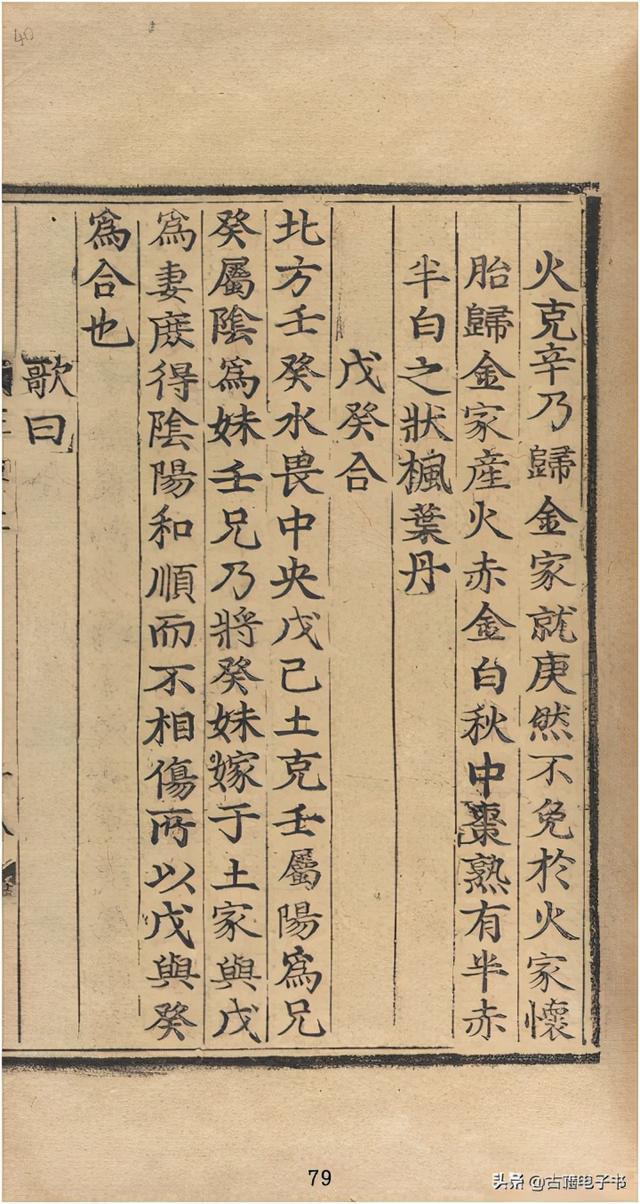 火克辛乃歸金家就庚然不免於火家懷
胎歸金家産火赤金白秋中棗熟有半赤
半白之狀楓葉丹
戊癸合
北方壬癸水畏中央戊己土克壬屬陽爲兄
癸屬陰爲妹壬兄乃將癸妹嫁于土家與戊
爲妻庶得陰陽和順而不相傷所以戊與癸
爲合也
歌曰
40
79
头条 @古籍电子书